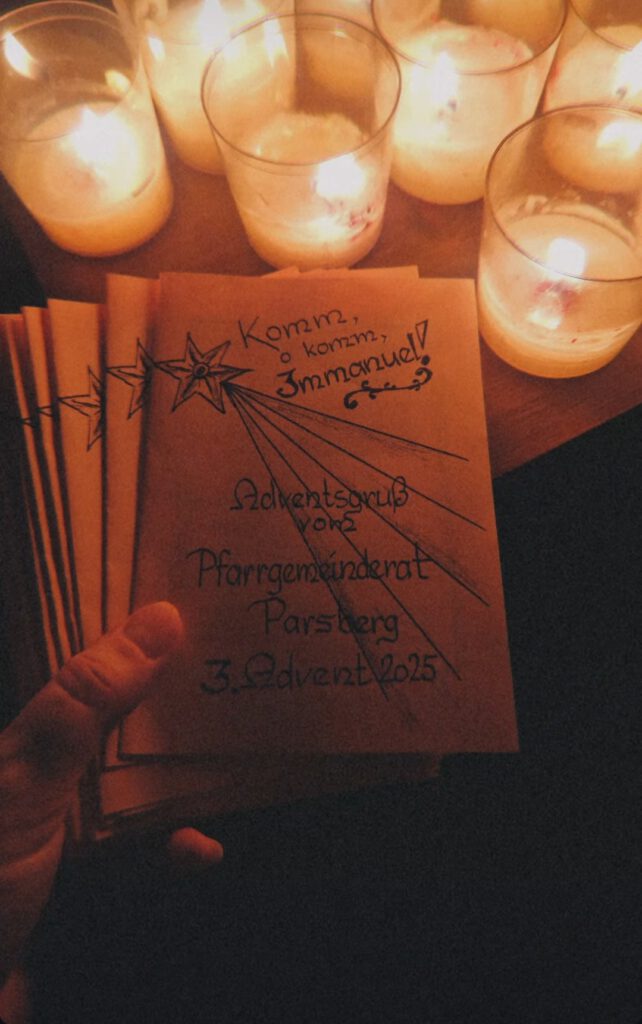 Komm,
o komm,
Immanuel!
Adventsgruß
vom
Pfarrgemeinderat
Parsberg
3. Advent 2025